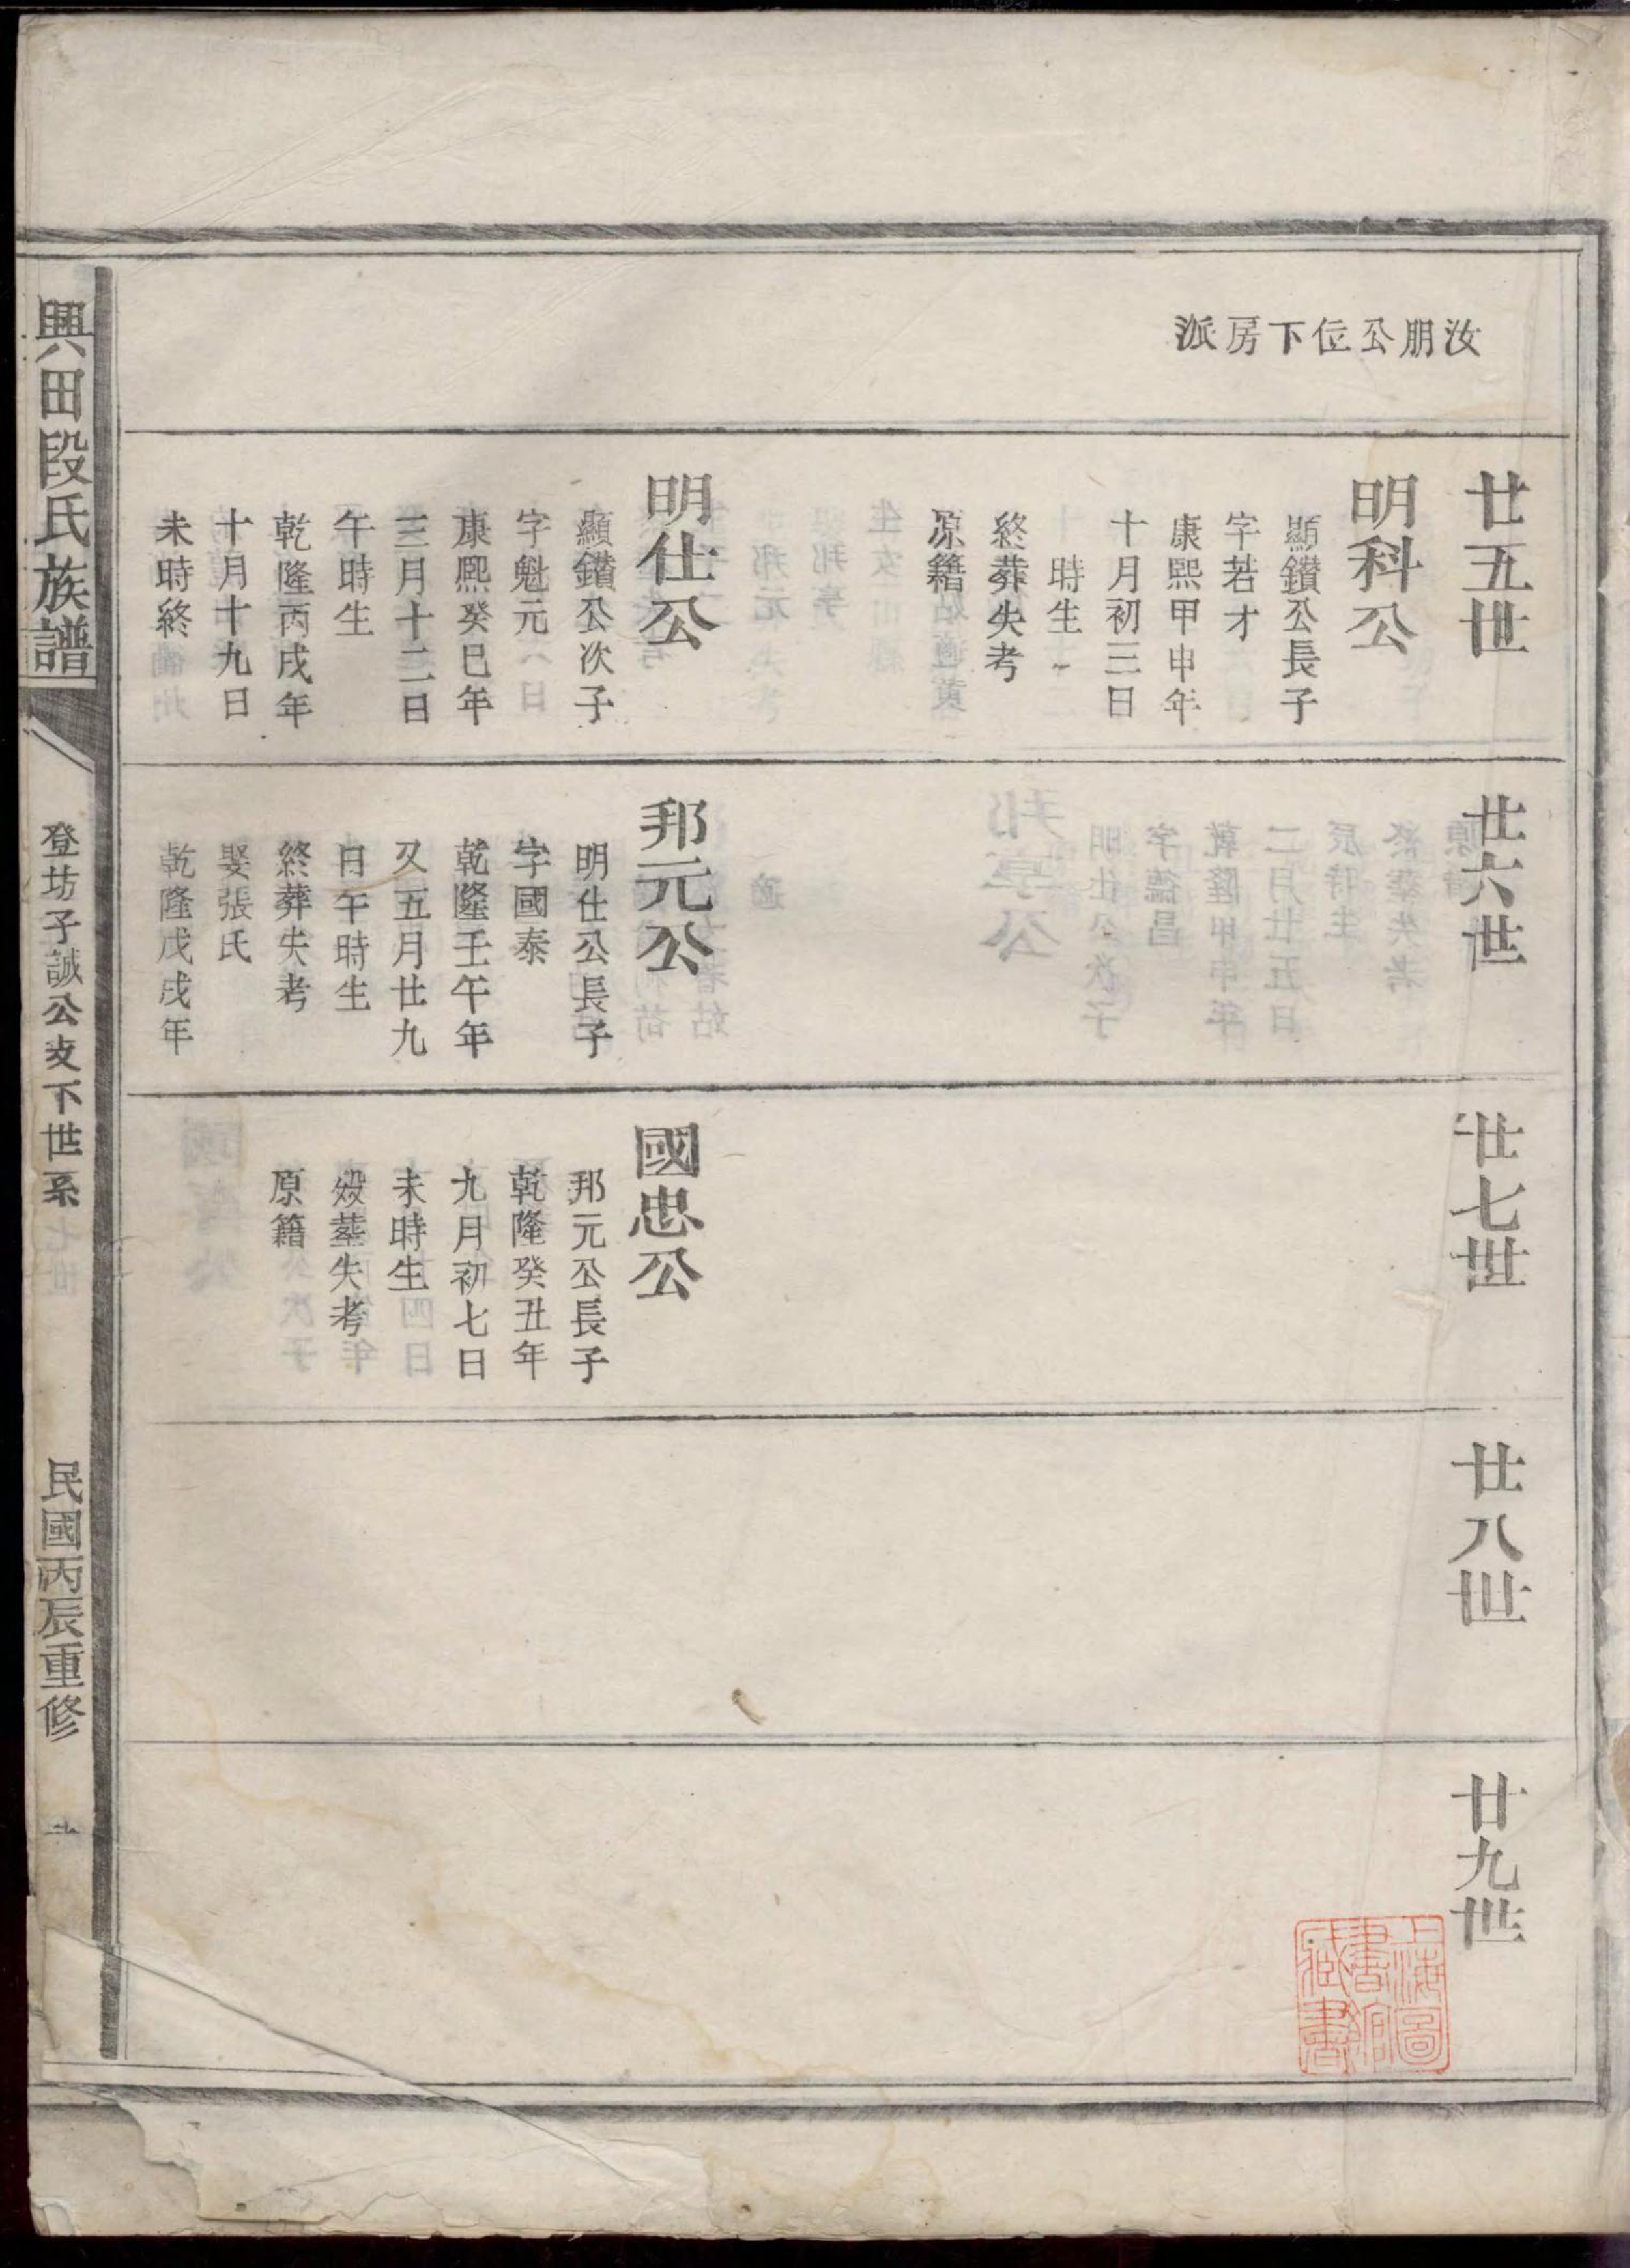 汝朋公位下房派
廿五世
明科公
顯鑽公長子
字若才
康熙甲申年
十月初三日
時生
終葬失考
原籍
明仕公
顯鑽公次子
字魁元
康熙癸巳年
三月十二日
午時生
乾隆丙戌年
十月十九日
未時終
廿六世
邦元公
明仕公長子
字國泰
乾隆壬午年
又五月廿九
日午時生
終葬失考
娶張氏
乾隆戊戌年
廿七世
國忠公
邦元公長子
乾隆癸丑年
九月初七日
未時生
歿塟失考
原籍
廿八世
廿九世
興田段氏族譜
登坊子誠公支下世系
民國丙辰重修
上海圖
書館
藏書